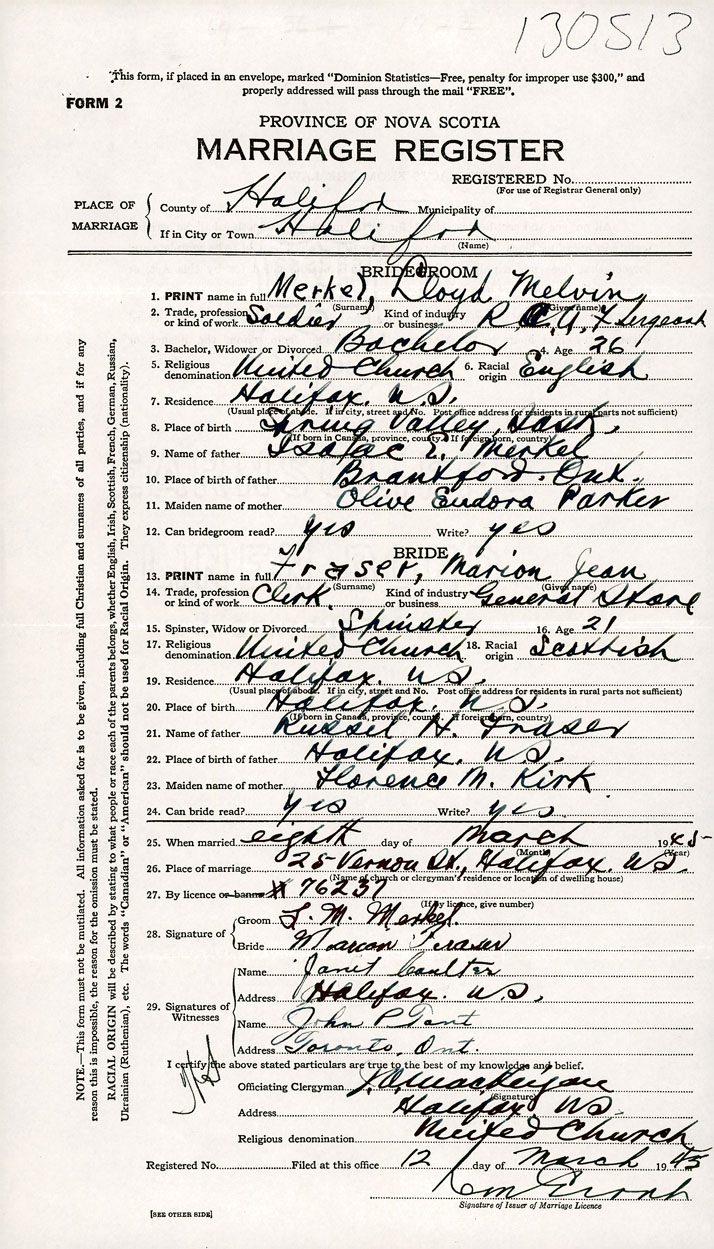 130513
This form, if placed in an envelope, marked "Dominion Statistics—Free, penalty for improper use $300," and
properly addressed will pass through the mail "FREE".
FORM 2
PROVINCE OF NOVA SCOTIA
MARRIAGE REGISTER
REGISTERED No.
(For use of Registrar General only)
PLACE OF MARRIAGE
County of Halifax Municipality of
If in City or Town Halifax
(Name)
BRIDEGROOM
1. PRINT name in full Merkel, Lloyd Melvin
(Surname) (Given name)
2. Trade, profession or kind of work Soldier Kind of industry or business R.C.A.F Sergeant
3. Bachelor, Widower or Divorced Bachelor 4. Age 26
5. Religious denomination United Church 6. Racial origin English
7. Residence Halifax. N.S.
(Usual place of abode. If in city, street and No. Post office address for residents in rural parts not sufficient)
8. Place of birth Spring Valley, Sask.
(If born in Canada, province, county. If foreign born, country)
9. Name of father Isaac Merkel
10. Place of birth of father Brantford. Ont.
11. Maiden name of mother Olive Eudora Parker
12. Can bridegroom read? yes Write? yes
BRIDE
13. PRINT name in full Fraser, Marion Jean
(Surname) (Given name)
14. Trade, profession or kind of work Clerk Kind of industry or business General Store
15. Spinster, Widow or Divorced Spinster 16. Age 21
17. Religious denomination United Church 18. Racial origin Scottish
19. Residence Halifax. N.S.
(Usual place of abode. If in city, street and No. Post office address for residents in rural parts not sufficient)
20. Place of birth Halifax. N.S.
(If born in Canada, province, county. If foreign born, country)
21. Name of father Russel H. Fraser
22. Place of birth of father Halifax. N.S.
23. Maiden name of mother Florence M. Kirk
24. Can bride read? yes Write? yes
25. When married eighth day of March 1945
(Month) (Year)
26. Place of marriage 25 Vernon St., Halifax. N.S.
(Name of church or clergyman's residence or location of dwelling house)
27. By licence or banns # 76237
(If by licence, give number)
28. Signature of
Groom L. M. Merkel
Bride Marion Fraser
29. Signatures of Witnesses
Name Janet Coulter
Address Halifax. N.S.
Name John P
Address Toronto, Ont.
I certify the above stated particulars are true to the best of my knowledge and belief.
Officiating Clergyman
(Signature)
Address Halifax, N.S.
Religious denomination United Church
Registered No. Filed at this office 12 day of March 1945
Signature of Issuer of Marriage Licence
[SEE OTHER SIDE]
NOTE.—This form must not be mutilated. All information asked for is to be given, including full Christian and surnames of all parties, and if for any
reason this is impossible, the reason for the omission must be stated.
RACIAL ORIGIN will be described by stating to what people or race each of the parents belongs, whether English, Irish, Scottish, French, German, Russian,
Ukrainian (Ruthenian), etc. The words "Canadian" or "American" should not be used for Racial Origin. They express citizenship (nationality).